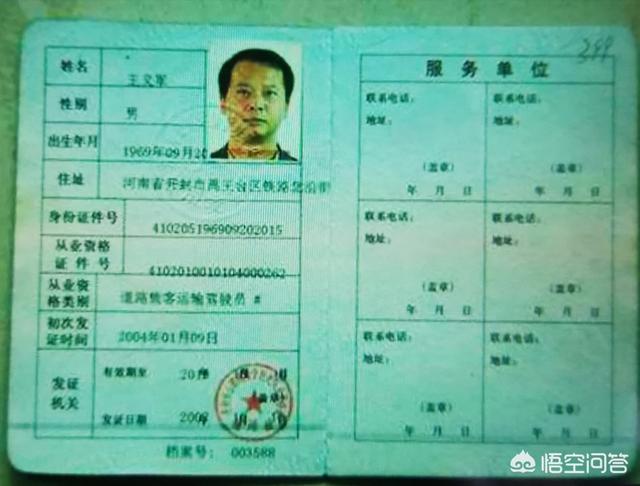 姓名
王文军
性别
男
出生年月
1969年09月20
住址
河南省开封市禹王台区铁路北沿街
身份证件号
410205196909202015
从业资格
证件号
4102010010104000262
从业资
格类别
道路旅客运输驾驶员 #
初次发
证时间
2004年01月09日
发证
机关
有效期至
盖章
发证日期
档案号: 003588
399
服务单位
联系电话: 联系电话:
地址: 地址:
(盖章) (盖章)
年 月 日 年 月 日
联系电话: 联系电话:
地址: 地址:
(盖章) (盖章)
年 月 日 年 月 日
联系电话: 联系电话:
地址: 地址:
(盖章) (盖章)
年 月 日 年 月 日
悟空问答